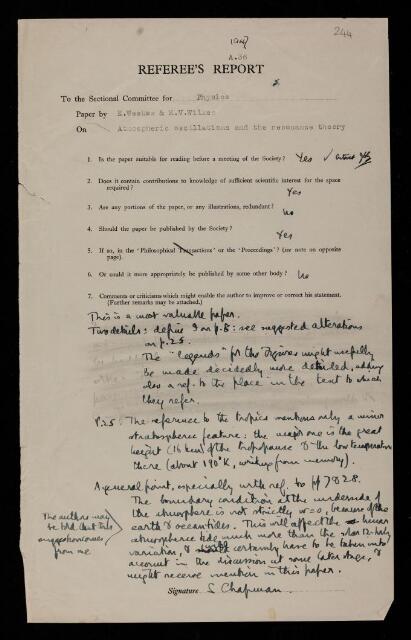 1947
244
A.36
REFEREE'S REPORT
To the Sectional Committee for Physics
Paper by K.Weekes & M.V.Wilkes
On Atmospheric oscillations and the resonance theory
1. Is the paper suitable for reading before a meeting of the Society? Yes
2. Does it contain contributions to knowledge of sufficient scientific interest for the space
required? Yes
3. Are any portions of the paper, or any illustrations, redundant? No
4. Should the paper be published by the Society? Yes
5. If so, in the 'Philosophical Transactions' or the 'Proceedings'? (see note on opposite
page).
6. Or could it more appropriately be published by some other body? No
7. Comments or criticisms which might enable the author to improve or correct his statement.
(Further remarks may be attached.)
This is a most valuable paper.
Two details: define on p.5: see suggested alterations
on p.25.
The "legends" for the figures might usefully
be made decidedly more detailed, adding
also a ref. to the place in the text to which
they refer.
P.25. The reference to the tropics mentions only a minor
stratospheric feature: the major one is the great
height (16 km) of the tropopause & the low temperature
there (about 190°K, writing from memory).
A general point, especially with ref. to pp 7 & 28.
The boundary condition at the underside of
the atmosphere is not strictly w=0, because of the
earth & ocean tides. This will affect the lunar
atmospheric tide much more than the solar 12-hrly
variation, & will certainly have to be taken into
account in the discussion at some later stage, &
might receive mention in this paper.
The authors may
be told that this
suggestion comes
from me
Signature S Chapman.